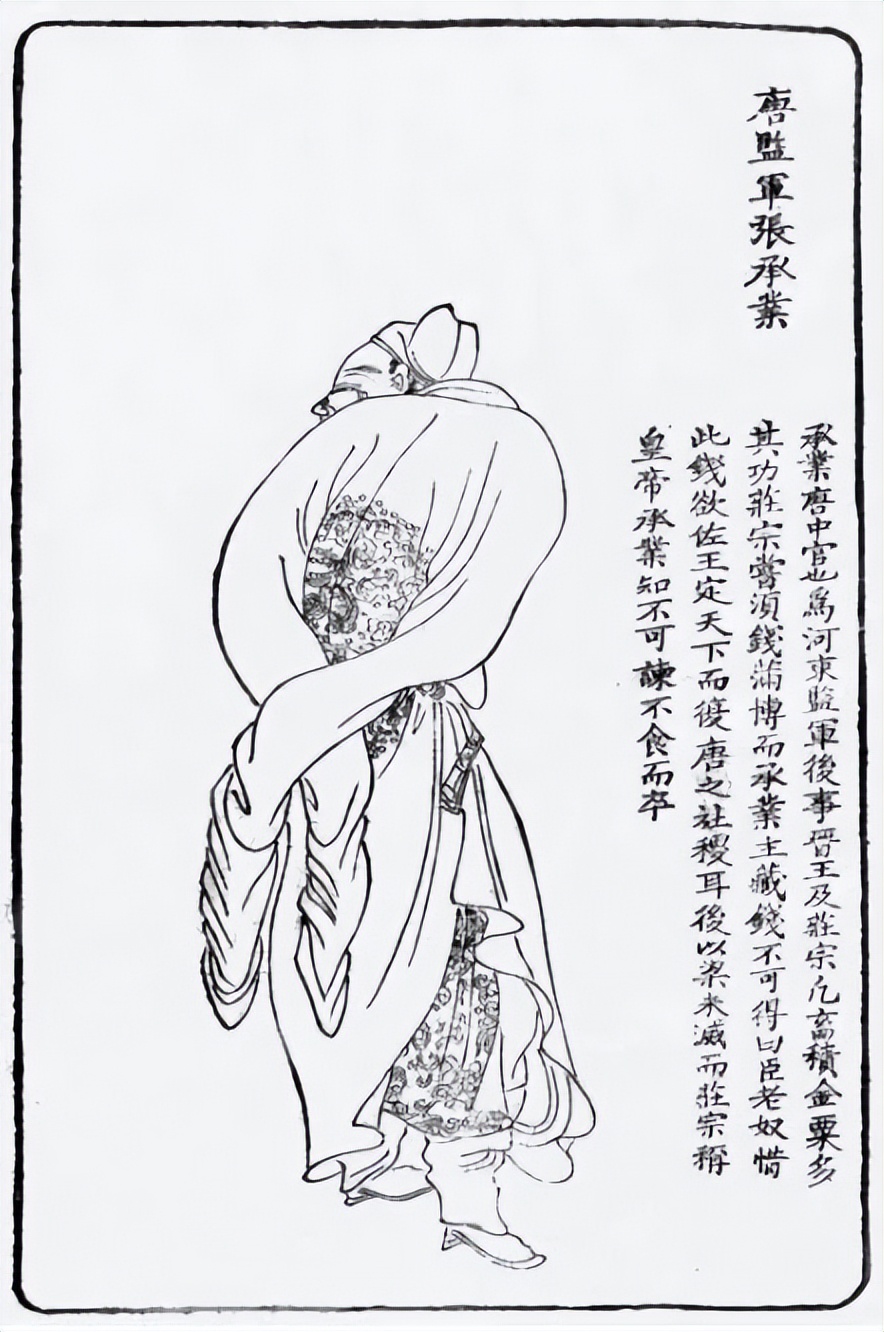 唐監軍張承業
承業唐中官也爲河東監軍後事晋王及莊宗凡畜積金粟多
其功莊宗嘗須錢蒲博而承業主藏錢不可得曰臣老奴惜
此錢欲佐王定天下而復唐之社稷耳後以梁未滅而莊宗稱
皇帝承業知不可諫不食而卒